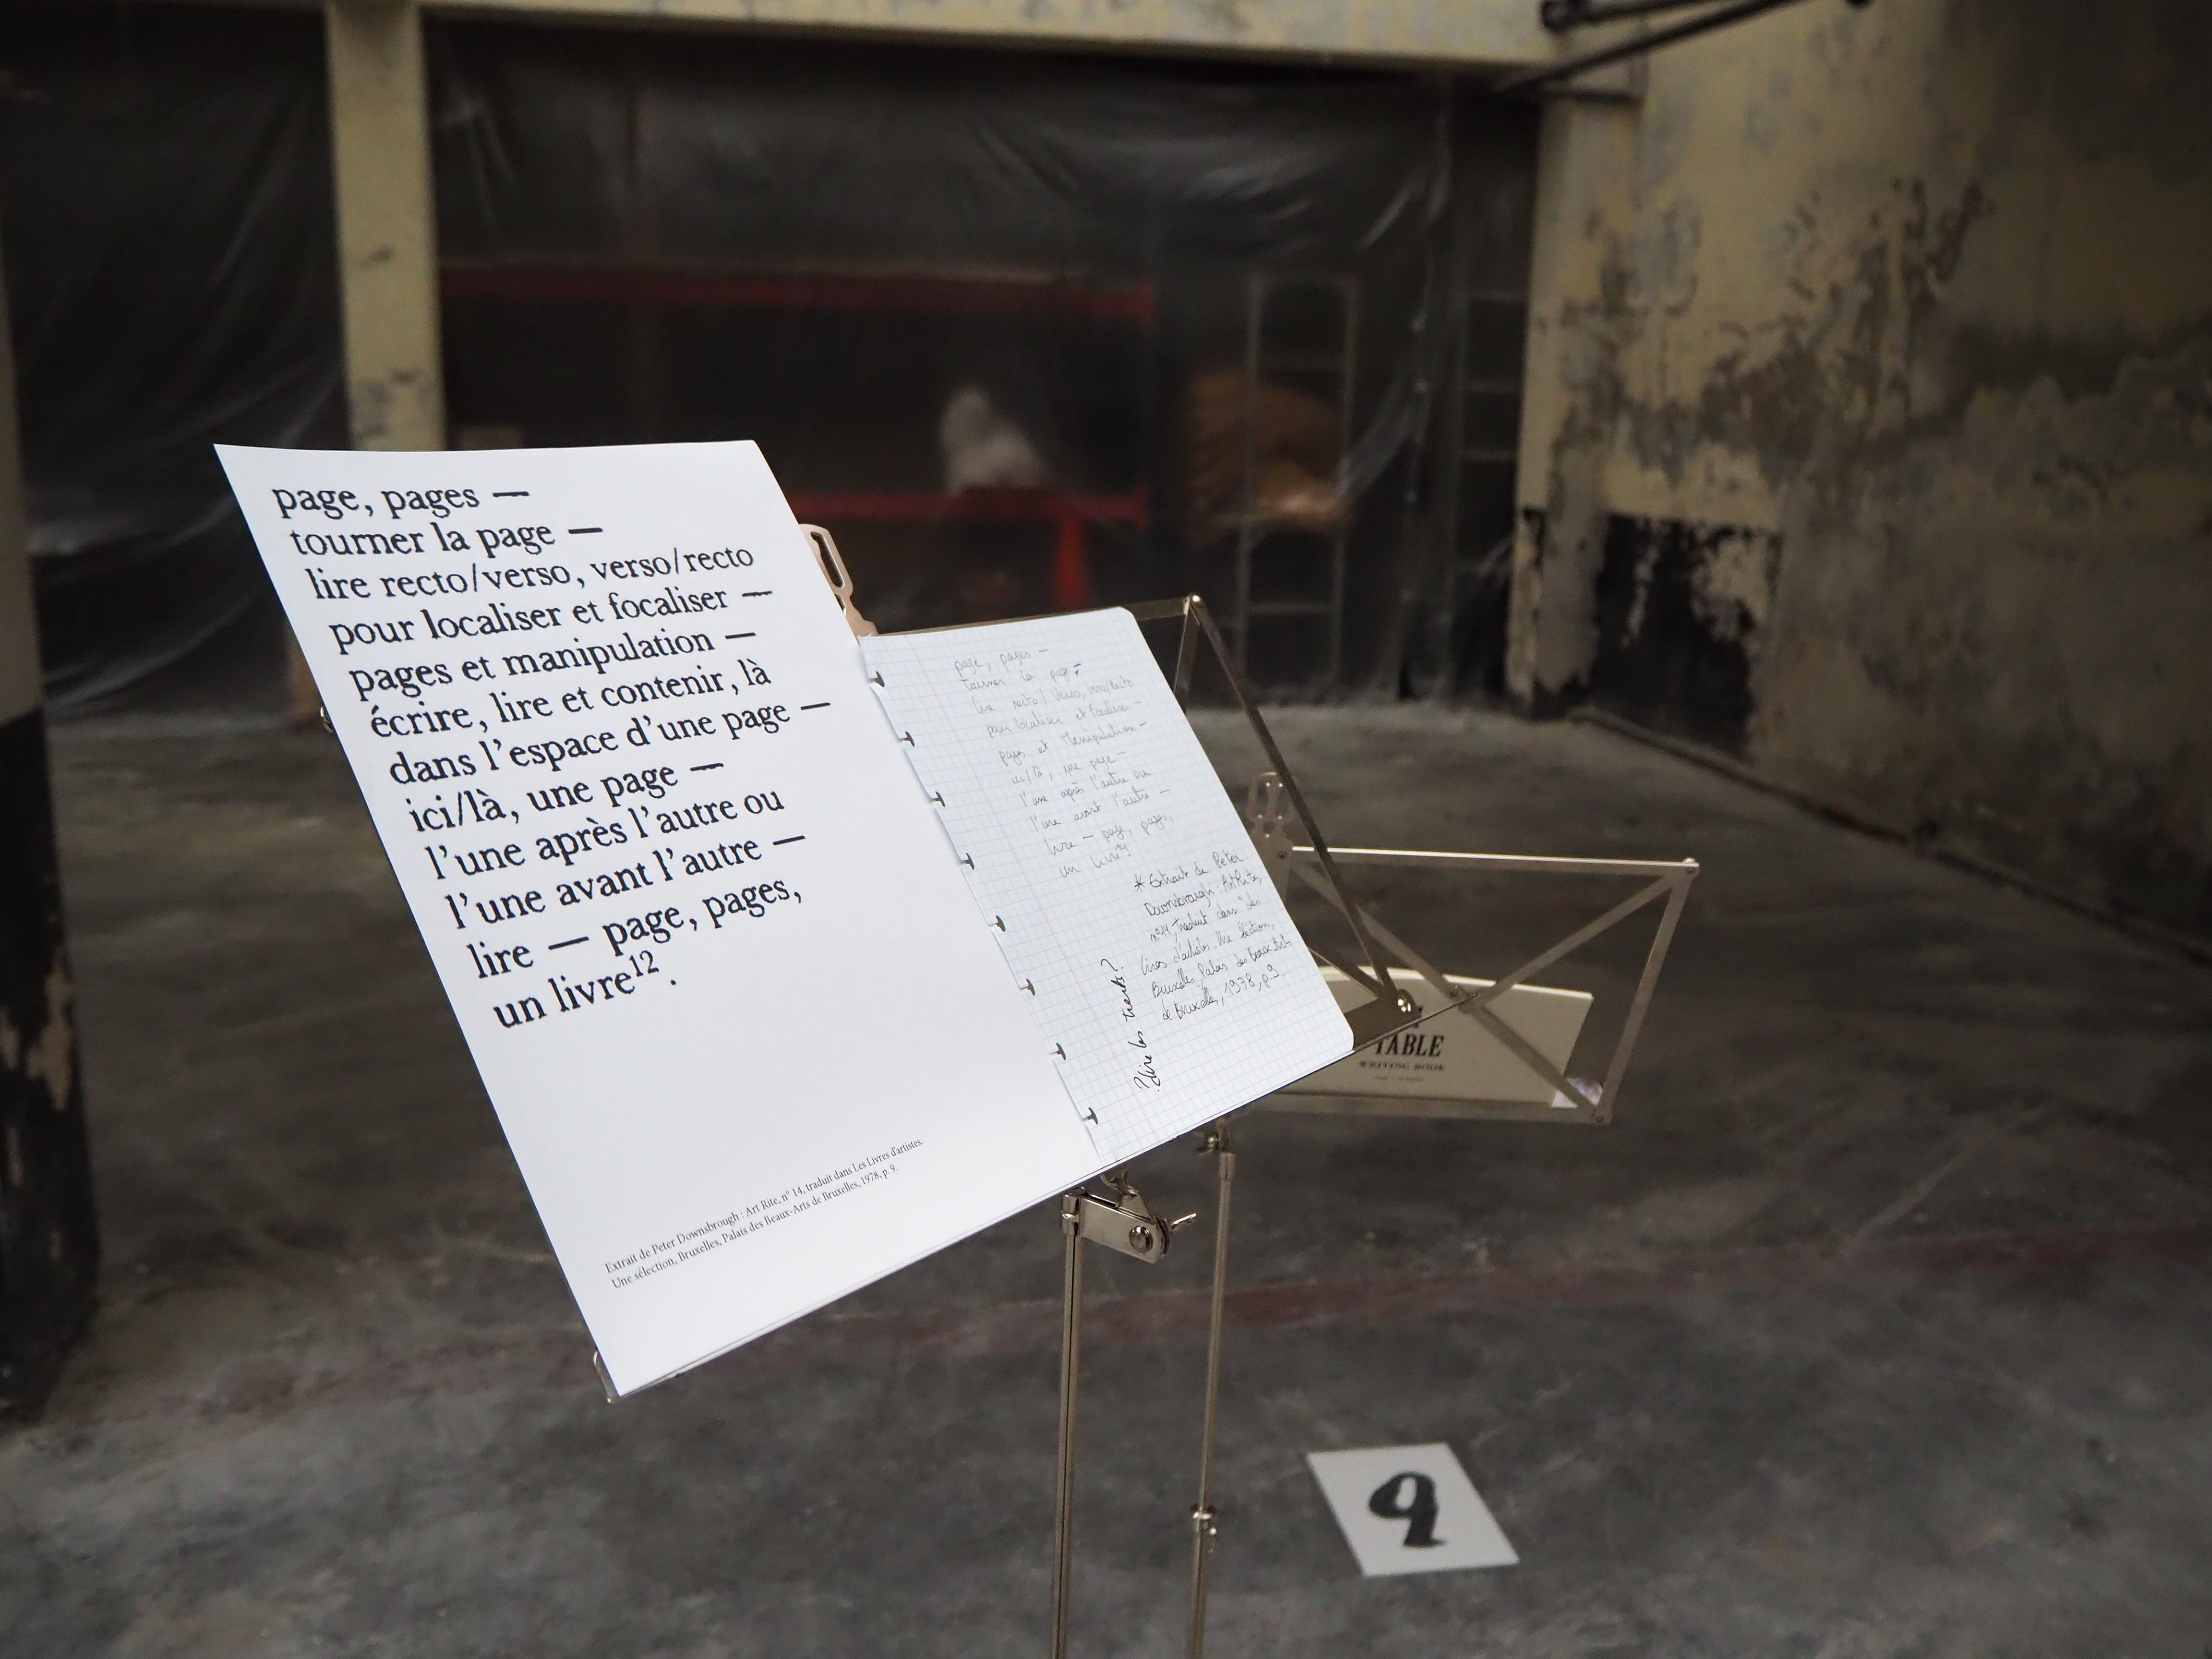 page, pages —
tourner la page —
lire recto/verso, verso/recto
pour localiser et focaliser —
pages et manipulation —
écrire, lire et contenir, là
dans l'espace d'une page —
ici/là, une page —
l'une après l'autre ou
l'une avant l'autre —
lire — page, pages,
un livre¹².
Extrait de Peter Downsbrough : Art Rite, n° 14, traduit dans Les Livres d'artistes.
Une sélection, Bruxelles, Palais des Beaux-Arts de Bruxelles, 1978, p. 9.
page, pages —
tourner la page —
lire recto/verso, verso/recto
pour localiser et focaliser —
pages et manipulation —
ici/là, une page —
l'une après l'autre ou
l'une avant l'autre —
lire — page, pages,
un livre
* Extrait de Peter
Downsbrough : Art Rite,
n°14, traduit dans
livres d'artistes. Une sélection,
Bruxelles, Palais des Beaux Arts
de Bruxelles, 1978, p.9.
TABLE
WRITING BOOK
9